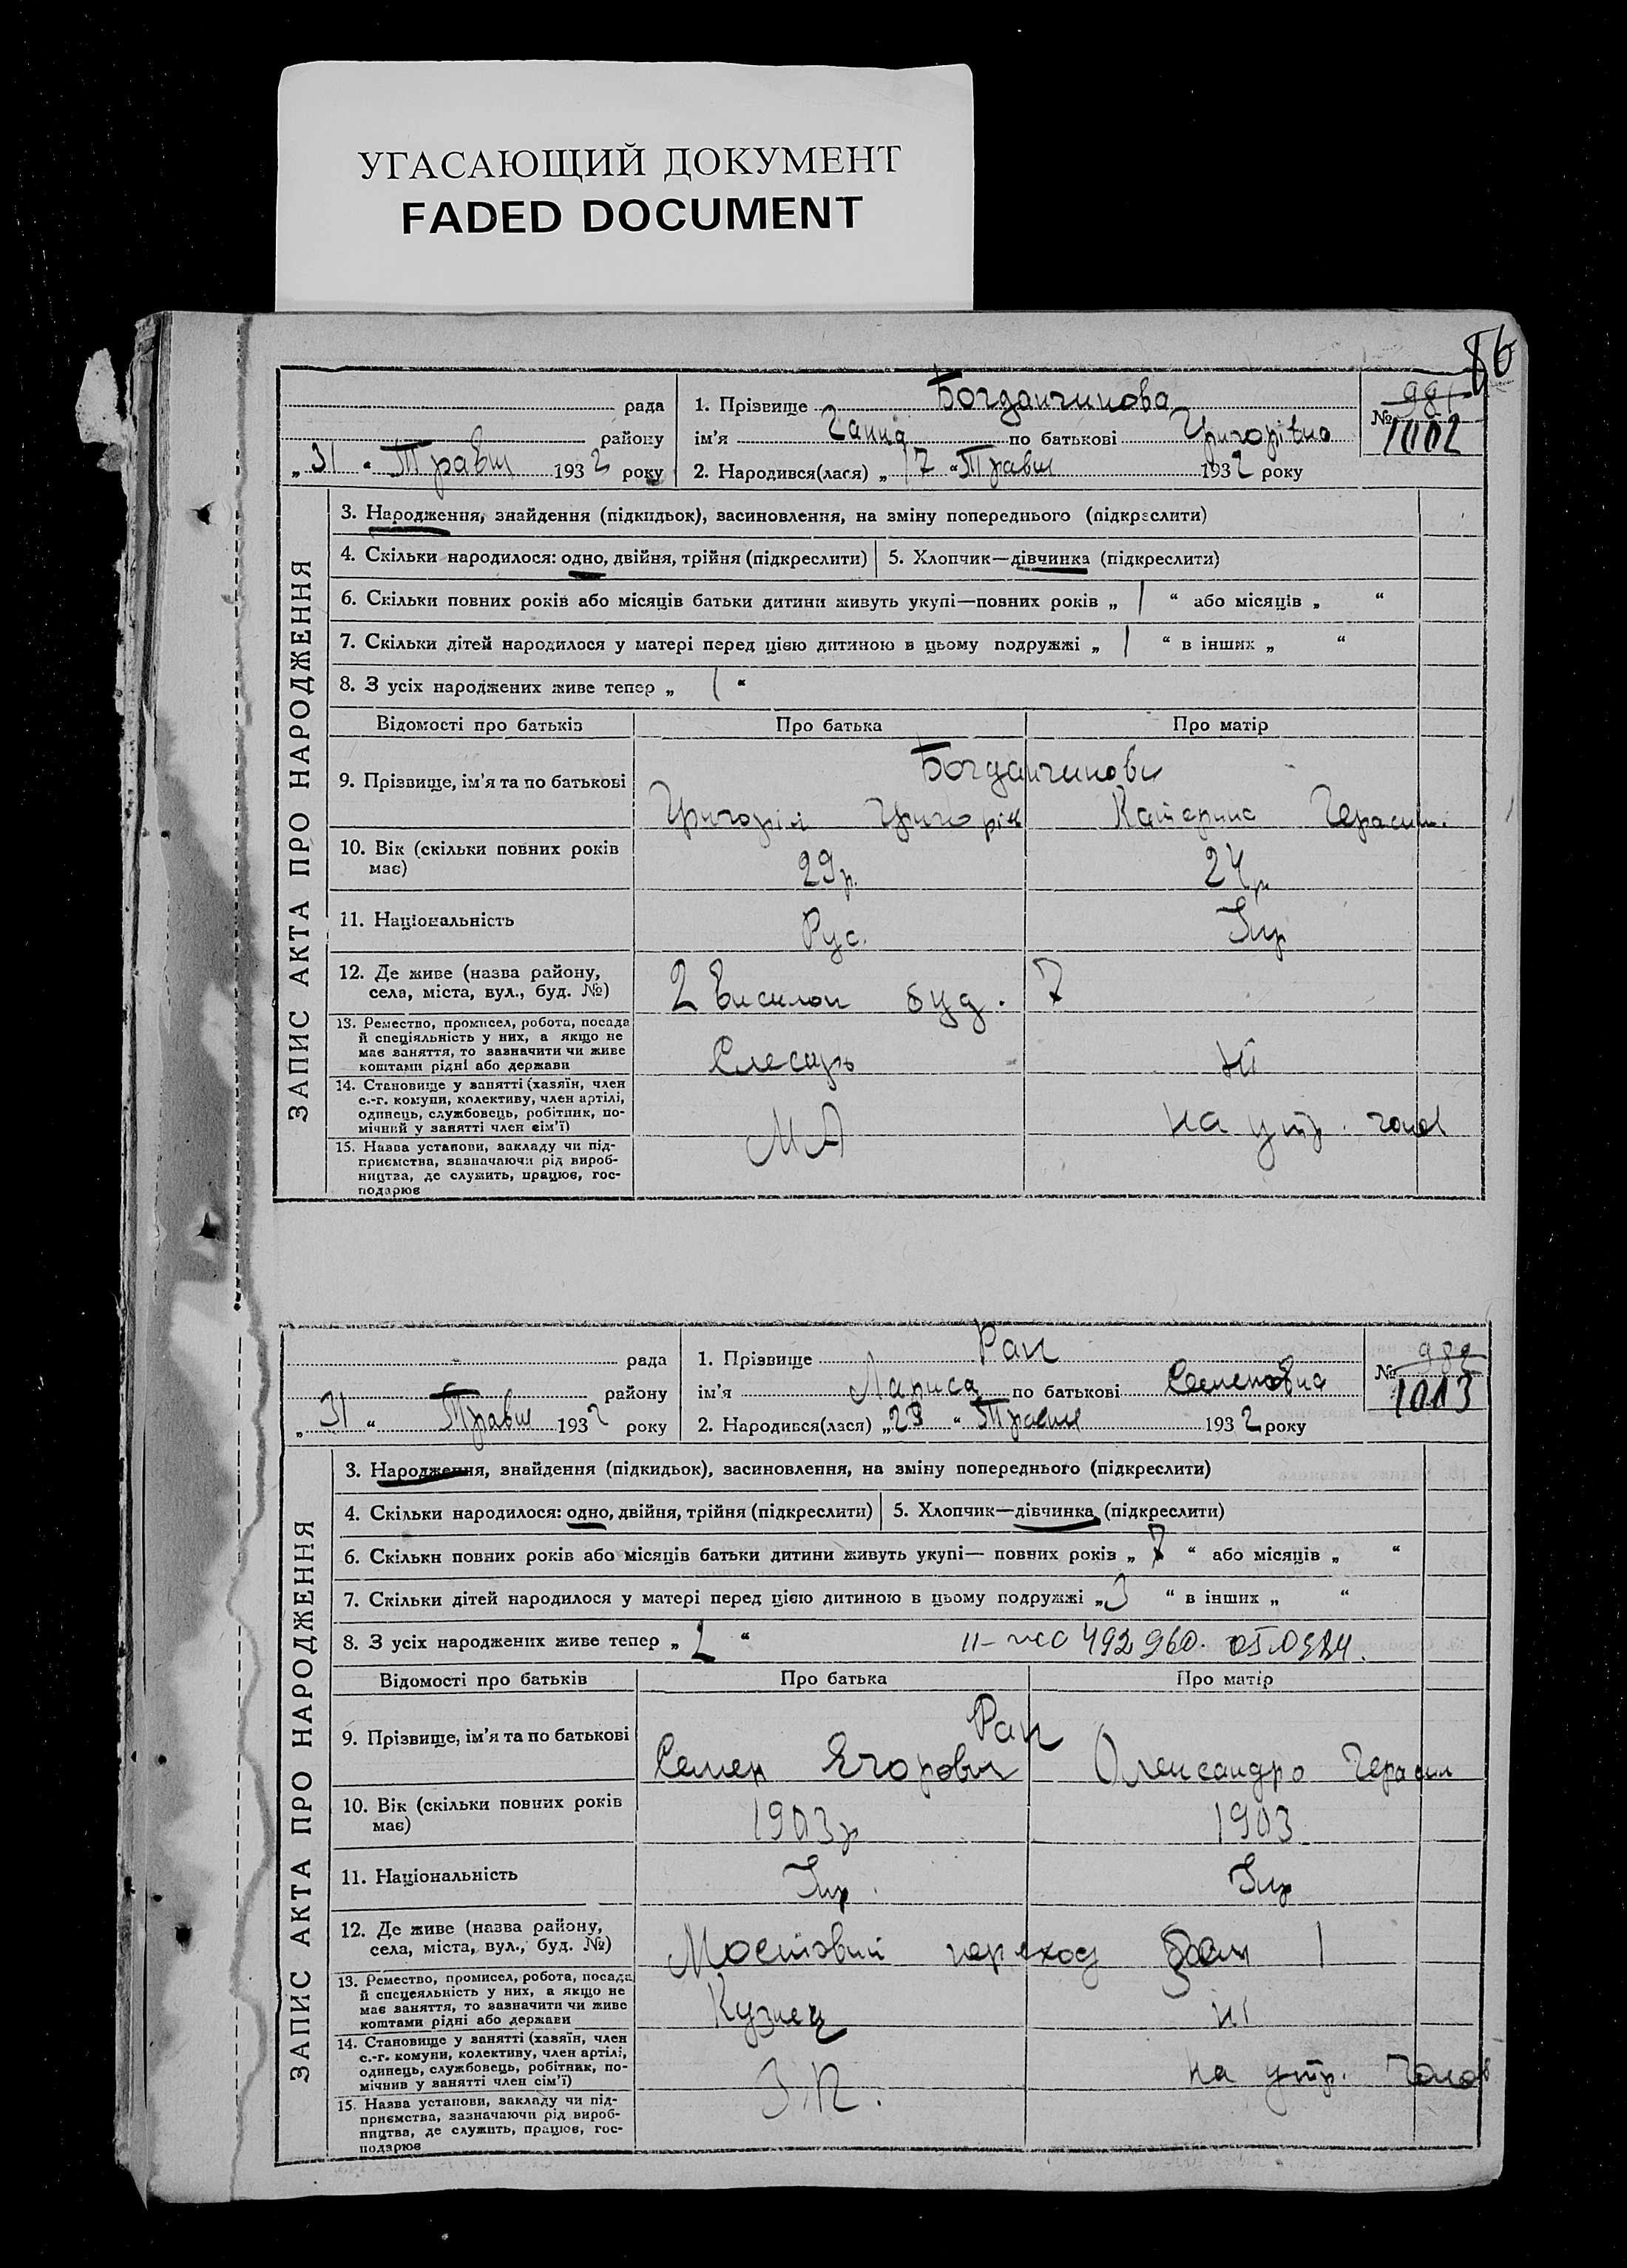 УГАСАЮЩИЙ ДОКУМЕНТ
FADED DOCUMENT
86
рада
району
„31“ Травня 1932 року
1. Прізвище Богданчикова
ім'я Ганна по батькові Григорівна
2. Народився(лася) „17“ Травня 1932 року
№ 981
1002
ЗАПИС АКТА ПРО НАРОДЖЕННЯ
3. Народження, знайдення (підкидьок), засиновлення, на зміну попереднього (підкреслити)
4. Скільки народилося: одно, двійня, трійня (підкреслити)
5. Хлопчик—дівчинка (підкреслити)
6. Скільки повних років або місяців батьки дитини живуть укупі—повних років „1“ або місяців „ “
7. Скільки дітей народилося у матері перед цією дитиною в цьому подружжі „1“ в інших „ “
8. З усіх народжених живе тепер „1“
Відомості про батьків Про батька Про матір
9. Прізвище, ім'я та по батькові
Богданчикови
Григорій Григорів Катерина Герасим.
10. Вік (скільки повних років
має)
29р. 24р
11. Національність Рус. Укр
12. Де живе (назва району,
села, міста, вул., буд. №)
2 Виселок буд. 7
13. Ремество, промисел, робота, посада
й спеціяльність у них, а якщо не
має заняття, то зазначити чи живе
коштами рідні або держави
Слесарь Ні
14. Становище у занятті (хазяїн, член
с.-г. комуни, колективу, член артілі,
одинець, службовець, робітник, по-
мічний у занятті член сім'ї)
на утр. голов
15. Назва установи, закладу чи під-
приємства, зазначаючи рід вироб-
ництва, де служить, працює, гос-
подарює
МА
рада
району
„31“ Травня 1932 року
1. Прізвище Рак
ім'я Лариса по батькові Семеновна
2. Народився(лася) „23“ Травня 1932 року
№ 982
1013
ЗАПИС АКТА ПРО НАРОДЖЕННЯ
3. Народження, знайдення (підкидьок), засиновлення, на зміну попереднього (підкреслити)
4. Скільки народилося: одно, двійня, трійня (підкреслити)
5. Хлопчик—дівчинка (підкреслити)
6. Скільки повних років або місяців батьки дитини живуть укупі— повних років „7“ або місяців „ “
7. Скільки дітей народилося у матері перед цією дитиною в цьому подружжі „3“ в інших „ “
8. З усіх народжених живе тепер „2“ 492960.
Відомості про батьків Про батька Про матір
9. Прізвище, ім'я та по батькові
Рак
Семен Егорович Олександра Герасим
10. Вік (скільки повних років
має)
1903р 1903
11. Національність Укр. Укр
12. Де живе (назва району,
села, міста, вул., буд. №)
Мостовий переход дом 1
13. Ремество, промисел, робота, посада
й спецеяльність у них, а якщо не
має заняття, то зазначити чи живе
коштами рідні або держави
Кузнец Ні
14. Становище у занятті (хазяїн, член
с.-г. комуни, колективу, член артілі,
одинець, службовець, робітник, по-
мічнив у занятті член сім'ї)
на утр. голов
15. Назва установи, закладу чи під-
приємства, зазначаючи рід вироб-
ництва, де служить, працює, гос-
подарює